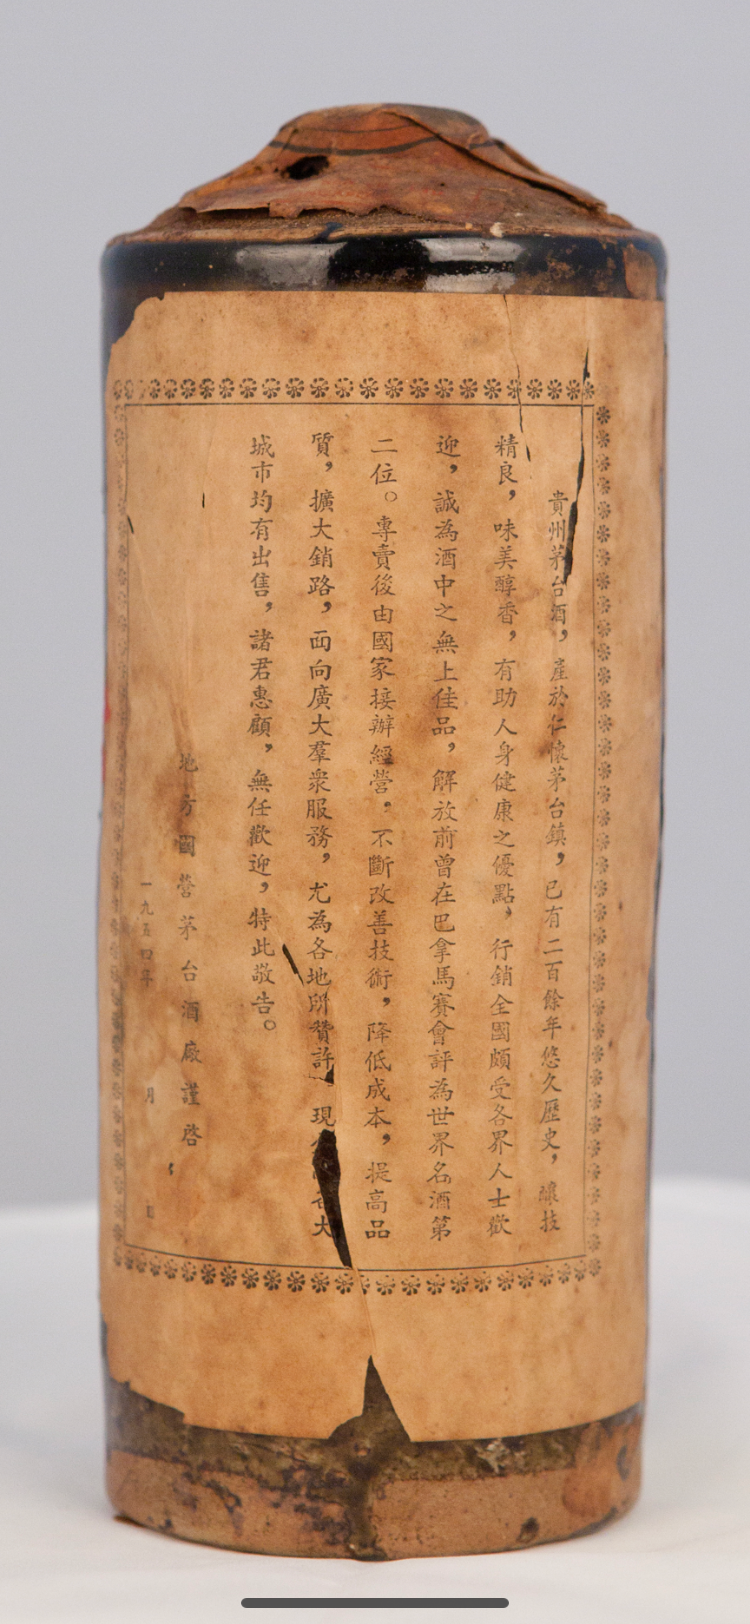 貴州茅台酒，產於仁懷茅台鎮，已有二百餘年悠久歷史，釀技
精良，味美醇香，有助人身健康之優點，行銷全國頗受各界人士歡
迎，誠為酒中之無上佳品，解放前曾在巴拿馬賽會評為世界名酒第
二位。專賣後由國家接辦經營，不斷改善技術，降低成本，提高品
質，擴大銷路，面向廣大羣衆服務，尤為各地所贊許，現 各大
城市均有出售，諸君惠顧，無任歡迎，特此敬告。
地方國營茅台酒廠謹啓
一九五四年 月 日